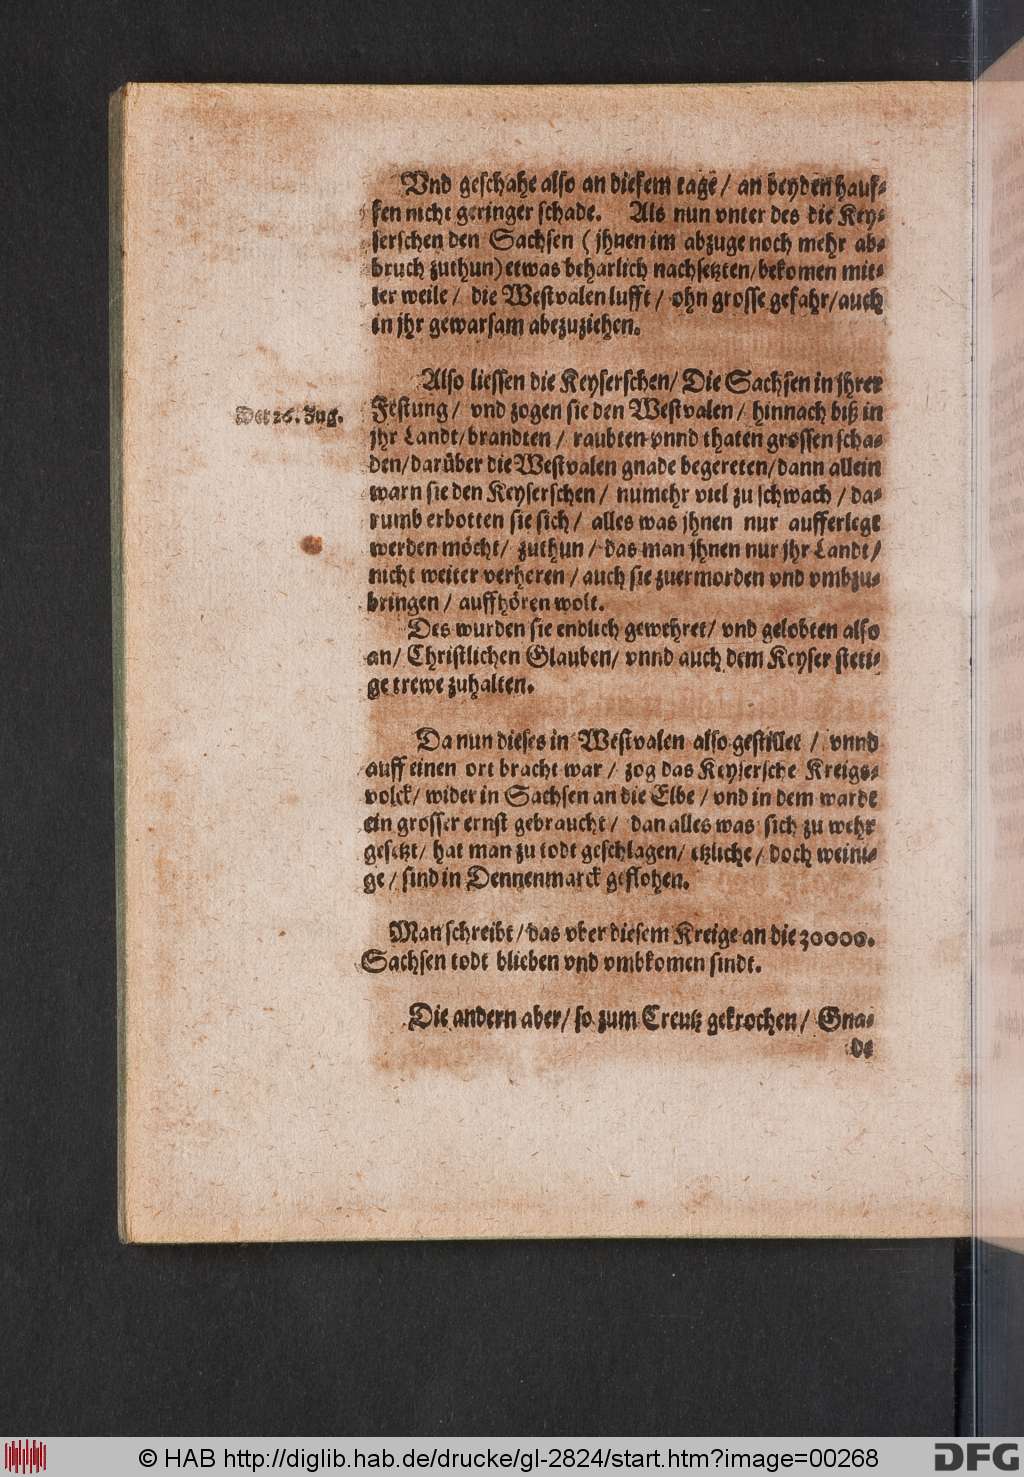 Vnd geschahe also an diesem tage / an beyden hauf-
fen nicht geringer schade. Als nun vnter des die Key-
serschen den Sachsen (jhnen im abzuge noch mehr ab-
bruch zuthun) etwas beharlich nachsetzten / bekomen mit-
ler weile / die Westvalen lufft / ohn grosse gefahr / auch
in jhr gewarsam abezuziehen.
Also liessen die Keyserschen / Die Sachsen in jhrer
Der 26. Zug.
Festung / vnd zogen sie den Westvalen / hinnach biß in
jhr Landt / brandten / raubten vnnd thaten grossen scha-
den / darüber die Westvalen gnade begereten / dann allein
warn sie den Keyserschen / numehr viel zu schwach / da-
rumb erbotten sie sich / alles was jhnen nur aufferlegt
werden möcht / zuthun / das man jhnen nur jhr Landt /
nicht weiter verheren / auch sie zuermorden vnd vmbzu-
bringen / auffhören wolt.
Des wurden sie endlich gewehret / vnd gelobten also
an / Christlichen Glauben / vnnd auch dem Keyser steti-
ge trewe zuhalten.
Da nun dieses in Westvalen also gestillet / vnnd
auff einen ort bracht war / zog das Keysersche Kreigs-
volck / wider in Sachsen an die Elbe / vnd in dem wardt
ein grosser ernst gebraucht / dan alles was sich zu wehr
gesetzt / hat man zu todt geschlagen / etzliche / doch weini-
ge / sind in Dennenmarck geflohen.
Man schreibt / das vber diesem Kreige an die 30000.
Sachsen todt blieben vnd vmbkomen sindt.
Die andern aber / so zum Creutz gekrochen / Gna-
de
© HAB http://diglib.hab.de/drucke/gl-2824/start.htm?image=00268
DFG